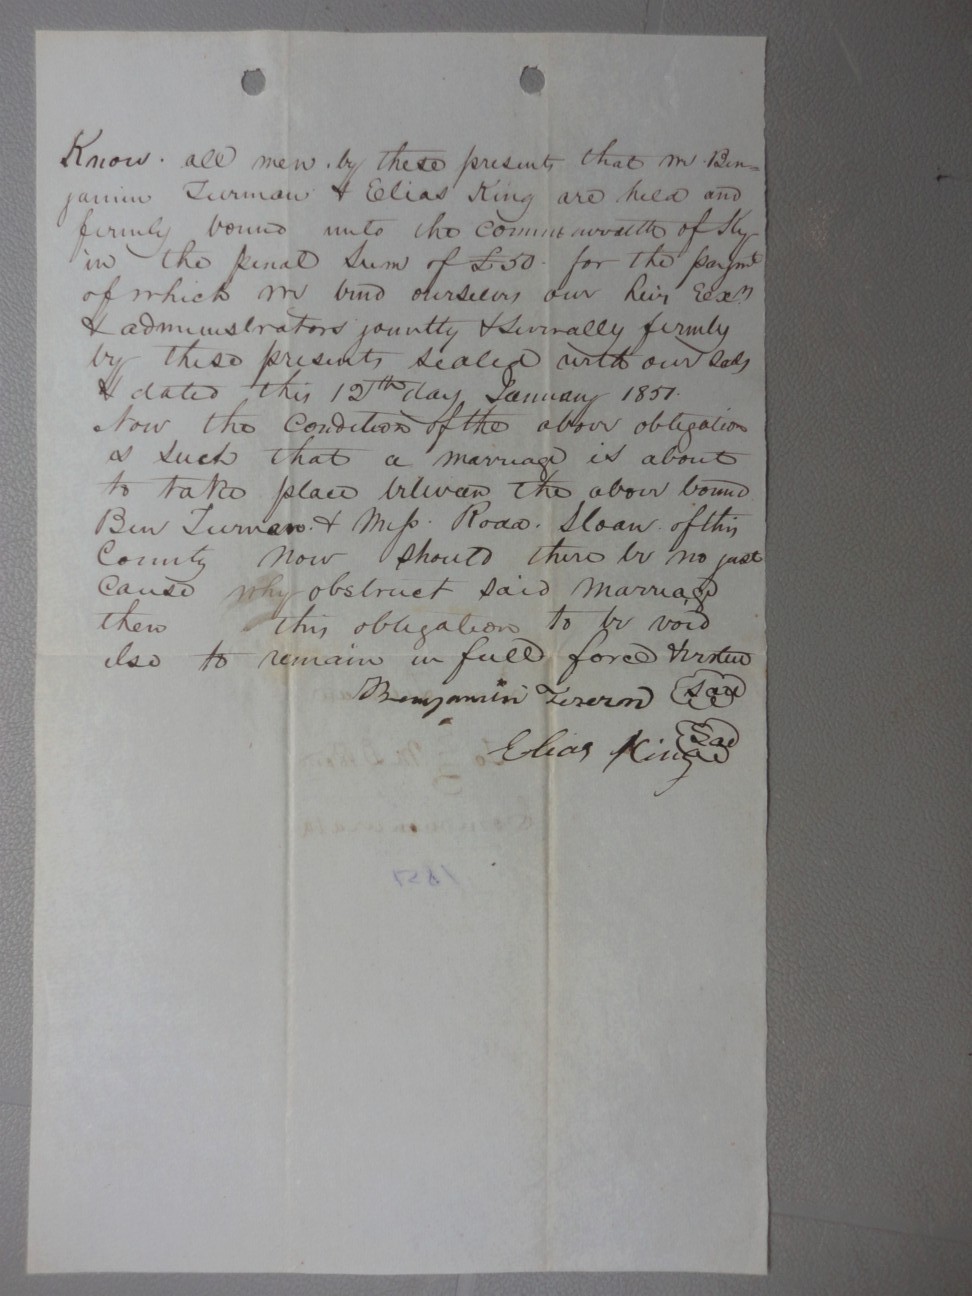 Know. all men. by these presents that we Ben=
jamin Turman & Elias King are held and
firmly bound unto the Commonwealth of Ky
in the penal Sum of £50. for the paymt
of which we bind ourselves our heirs Eexrs
& administrators jointly & severally firmly
by these presents sealed with our seals
& dated this 12th day January 1851.
Now the Condition of the above obligation
is such that a marriage is about
to take place between the above bound
Ben Turman. & Miss. Roda. Sloan. of this
County Now should there be no just
cause why obstruct said Marriage
then this obligation to be void
else to remain in full force & virtue
Benjamin Seal
Elias King Seal
1851